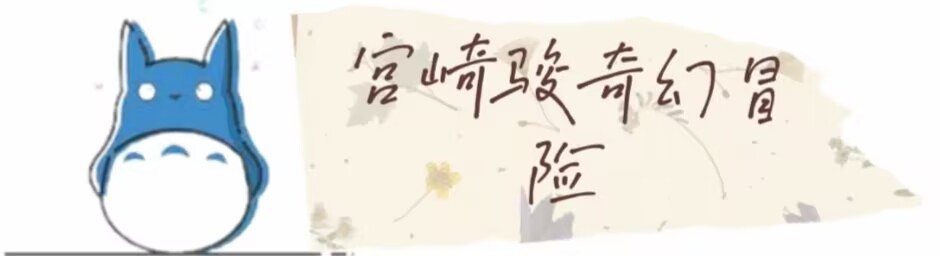 宫崎骏奇幻冒
险